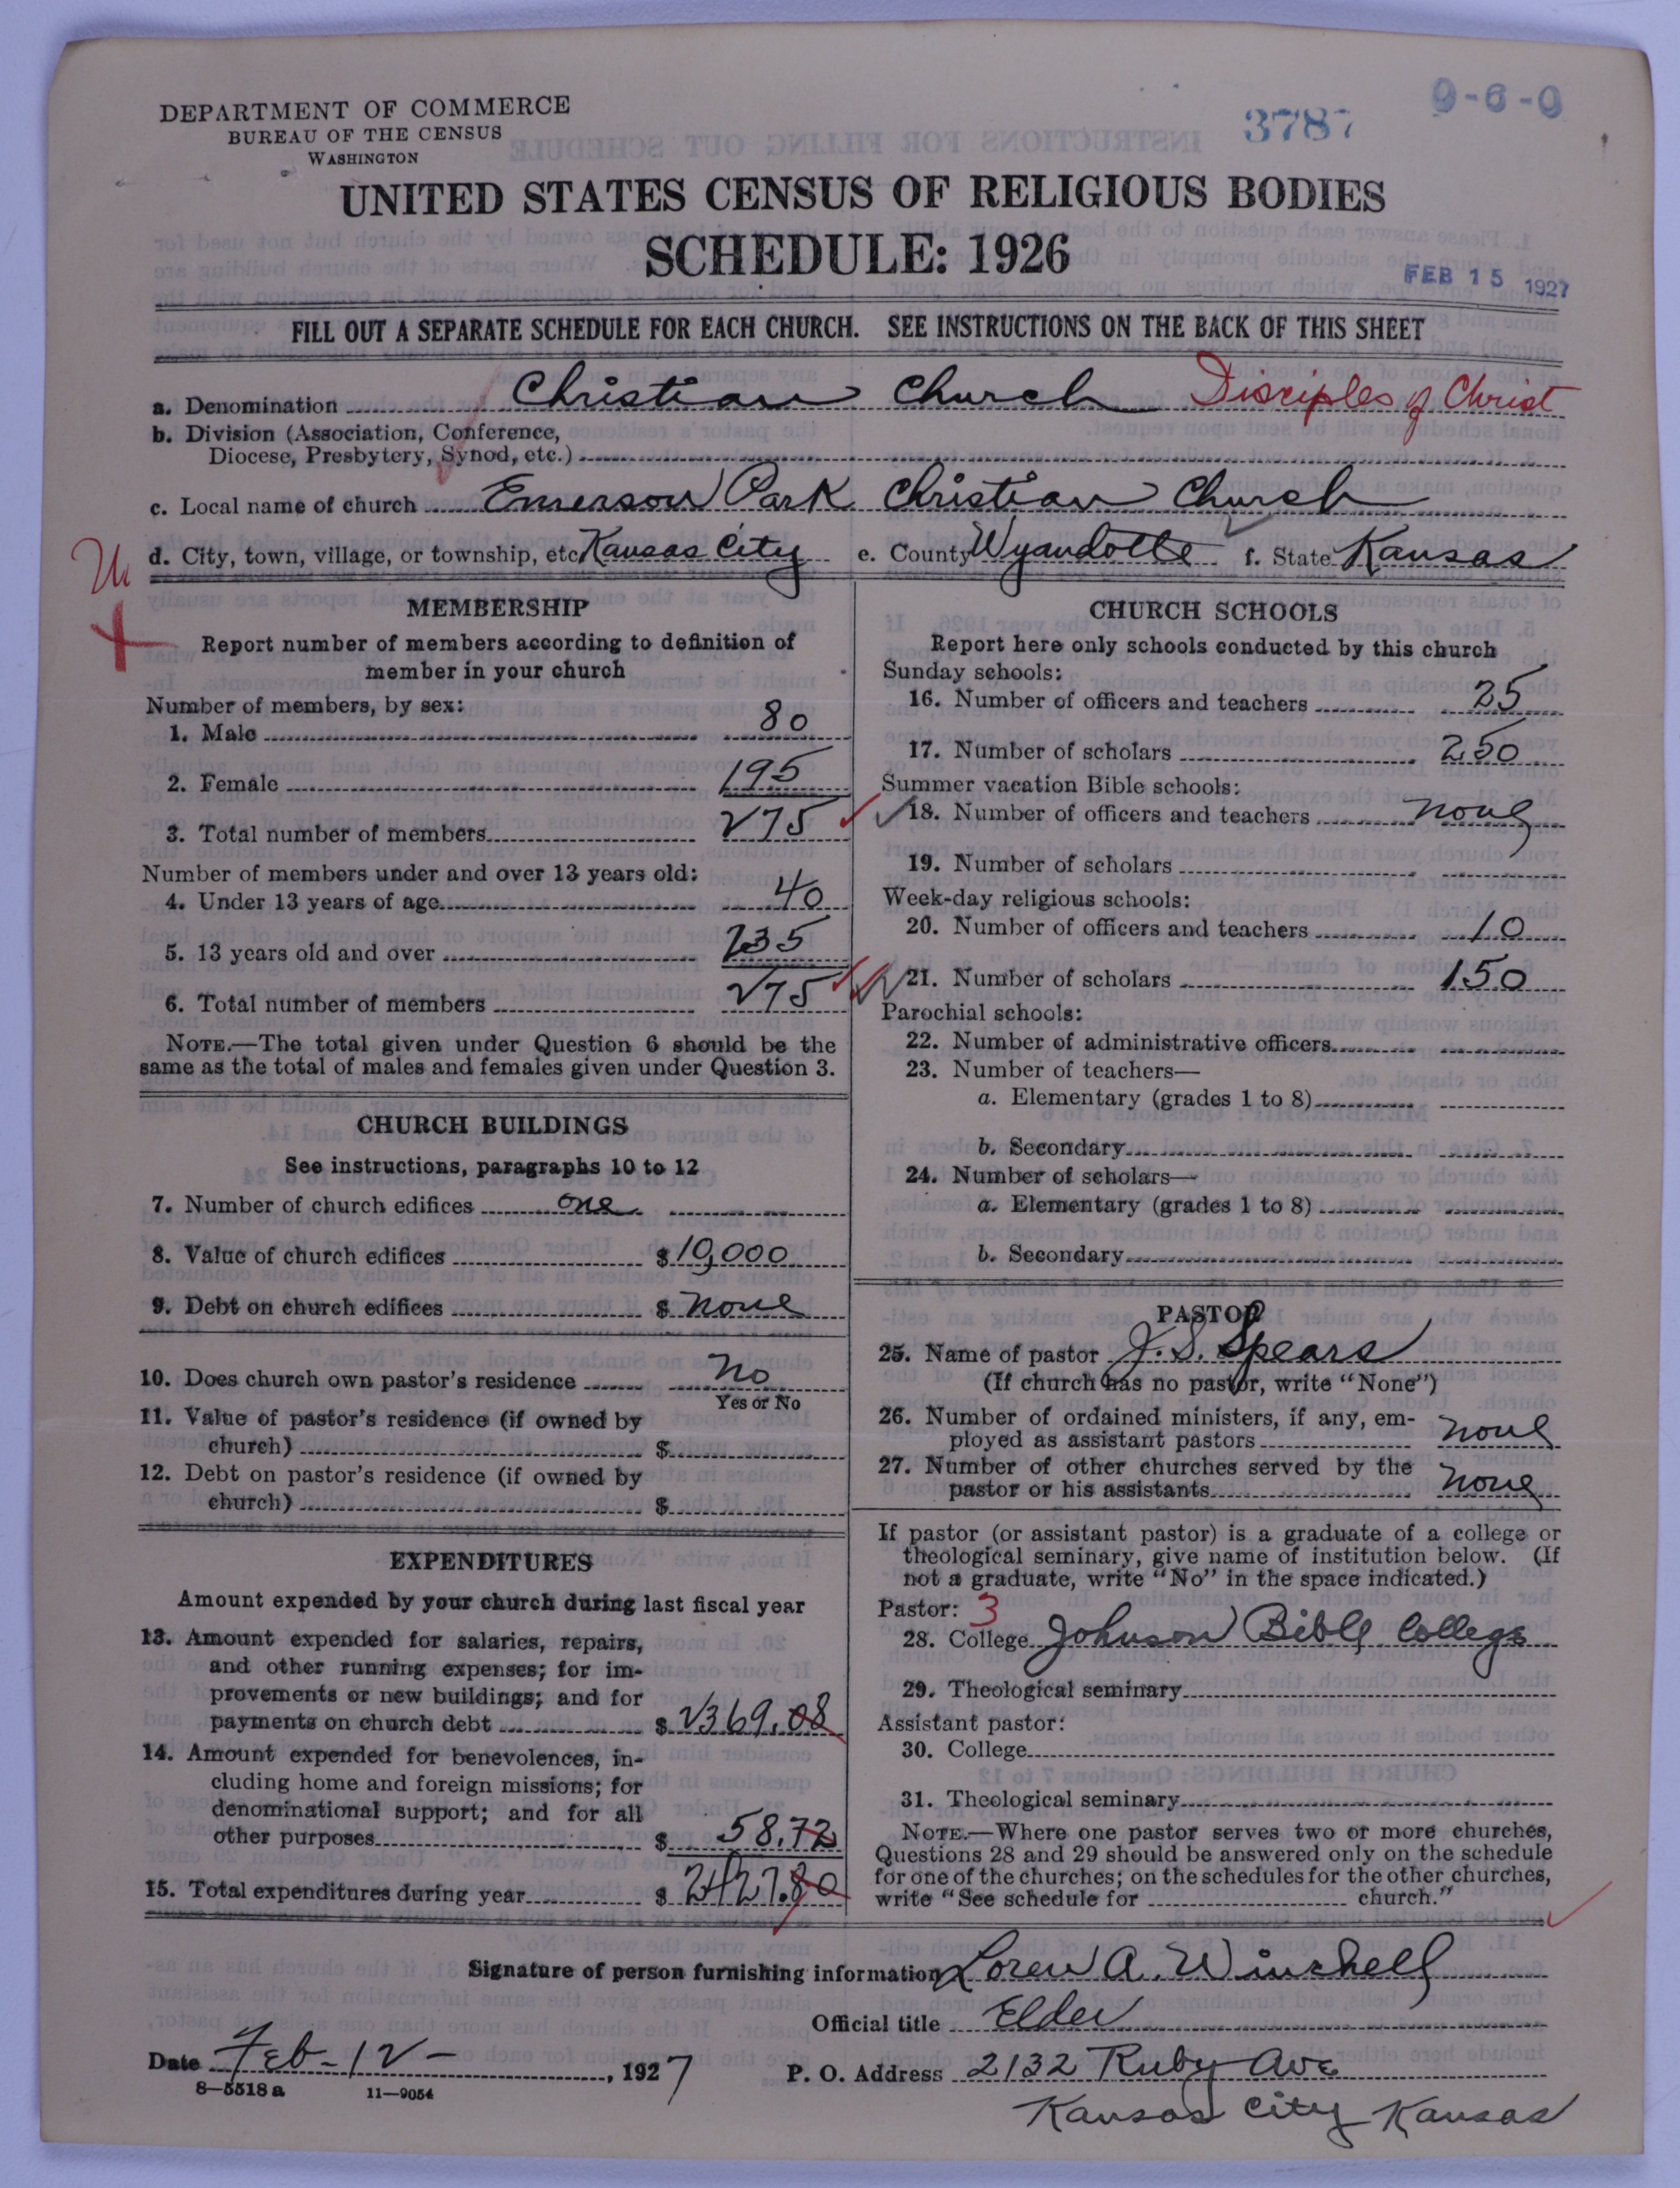 DEPARTMENT OF COMMERCE
BUREAU OF THE CENSUS
WASHINGTON
3787
9-6-0
UNITED STATES CENSUS OF RELIGIOUS BODIES
SCHEDULE: 1926
FEB 15 1927
FILL OUT A SEPARATE SCHEDULE FOR EACH CHURCH. SEE INSTRUCTIONS ON THE BACK OF THIS SHEET
a. Denomination Christian Church Disciples of Christ
b. Division (Association, Conference,
Diocese, Presbytery, Synod, etc.)
c. Local name of church Emerson Park Christian Church
d. City, town, village, or township, etc Kansas City e. County Wyandotte f. State Kansas
MEMBERSHIP
Report number of members according to definition of
member in your church
Number of members, by sex:
1. Male 80
2. Female 195
3. Total number of members 275
Number of members under and over 13 years old:
4. Under 13 years of age 40
5. 13 years old and over 235
6. Total number of members 275
NOTE.—The total given under Question 6 should be the
same as the total of males and females given under Question 3.
CHURCH BUILDINGS
See instructions, paragraphs 10 to 12
7. Number of church edifices one
8. Value of church edifices $ 10,000
9. Debt on church edifices $ none
10. Does church own pastor's residence No
Yes or No
11. Value of pastor's residence (if owned by
church) $
12. Debt on pastor's residence (if owned by
church) $
EXPENDITURES
Amount expended by your church during last fiscal year
13. Amount expended for salaries, repairs,
and other running expenses; for im-
provements or new buildings; and for
payments on church debt $ 2369.08
14. Amount expended for benevolences, in-
cluding home and foreign missions; for
denominational support; and for all
other purposes $ 58.72
15. Total expenditures during year $ 2427.80
CHURCH SCHOOLS
Report here only schools conducted by this church
Sunday schools:
16. Number of officers and teachers 25
17. Number of scholars 250
Summer vacation Bible schools:
18. Number of officers and teachers none
19. Number of scholars
Week-day religious schools:
20. Number of officers and teachers 10
21. Number of scholars 150
Parochial schools:
22. Number of administrative officers
23. Number of teachers—
a. Elementary (grades 1 to 8)
b. Secondary
24. Number of scholars—
a. Elementary (grades 1 to 8)
b. Secondary
PASTOR
25. Name of pastor J. S. Spears
(If church has no pastor, write "None")
26. Number of ordained ministers, if any, em-
ployed as assistant pastors none
27. Number of other churches served by the
pastor or his assistants none
If pastor (or assistant pastor) is a graduate of a college or
theological seminary, give name of institution below. (If
not a graduate, write "No" in the space indicated.)
Pastor: 3
28. College Johnson Bible College
29. Theological seminary
Assistant pastor:
30. College
31. Theological seminary
NOTE.—Where one pastor serves two or more churches,
Questions 28 and 29 should be answered only on the schedule
for one of the churches; on the schedules for the other churches,
write "See schedule for church."
Signature of person furnishing information Loren A. Winchell
Official title Elder
Date Feb-12- , 1927 P. O. Address 2132 Ruby Ave
8-5518a 11-9054
Kansas City Kansas